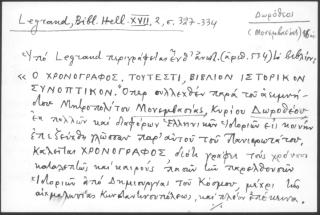 Legrand, Bibl. Hell. XVII, 2, σ. 327-334
Δωρόθεος
(Μονεμβασίας)
Ὑπὸ Legrand περιγράφεται ἐνθ' ἀνωτ. (ἀριθ. 554) τὸ βιβλίον:
« Ο ΧΡΟΝΟΓΡΑΦΟΣ, ΤΟΥΤΕΣΤΙ, ΒΙΒΛΙΟΝ ΙΣΤΟΡΙΚΟΝ
ΣΥΝΟΠΤΙΚΟΝ. Ὅπερ συλλεχθὲν παρὰ τοῦ ἀειμνή-
στου Μητροπολίτου Μονεμβασίας, Κυρίου Δωροθέου
ἐκ πολλῶν καὶ διαφόρων Ἑλληνικῶν Ἱστοριῶν εἰς κοινὴν
ἐπεδείχθη γλῶσσαν παρ' αὐτοῦ τοῦ Πανιερωτάτου.
Καλεῖται ΧΡΟΝΟΓΡΑΦΟΣ διότι γράφει τοὺς χρόνους
καταλεπτῶς καὶ καιροὺς πασῶν τῶν παρελθουσῶν
Ἱστοριῶν ἀπὸ Δημιουργίας τοῦ Κόσμου, μέχρι τῆς
αἰχμαλωσίας Κωνσταντινουπόλεως, καὶ πλέον ἐπέκεινα.